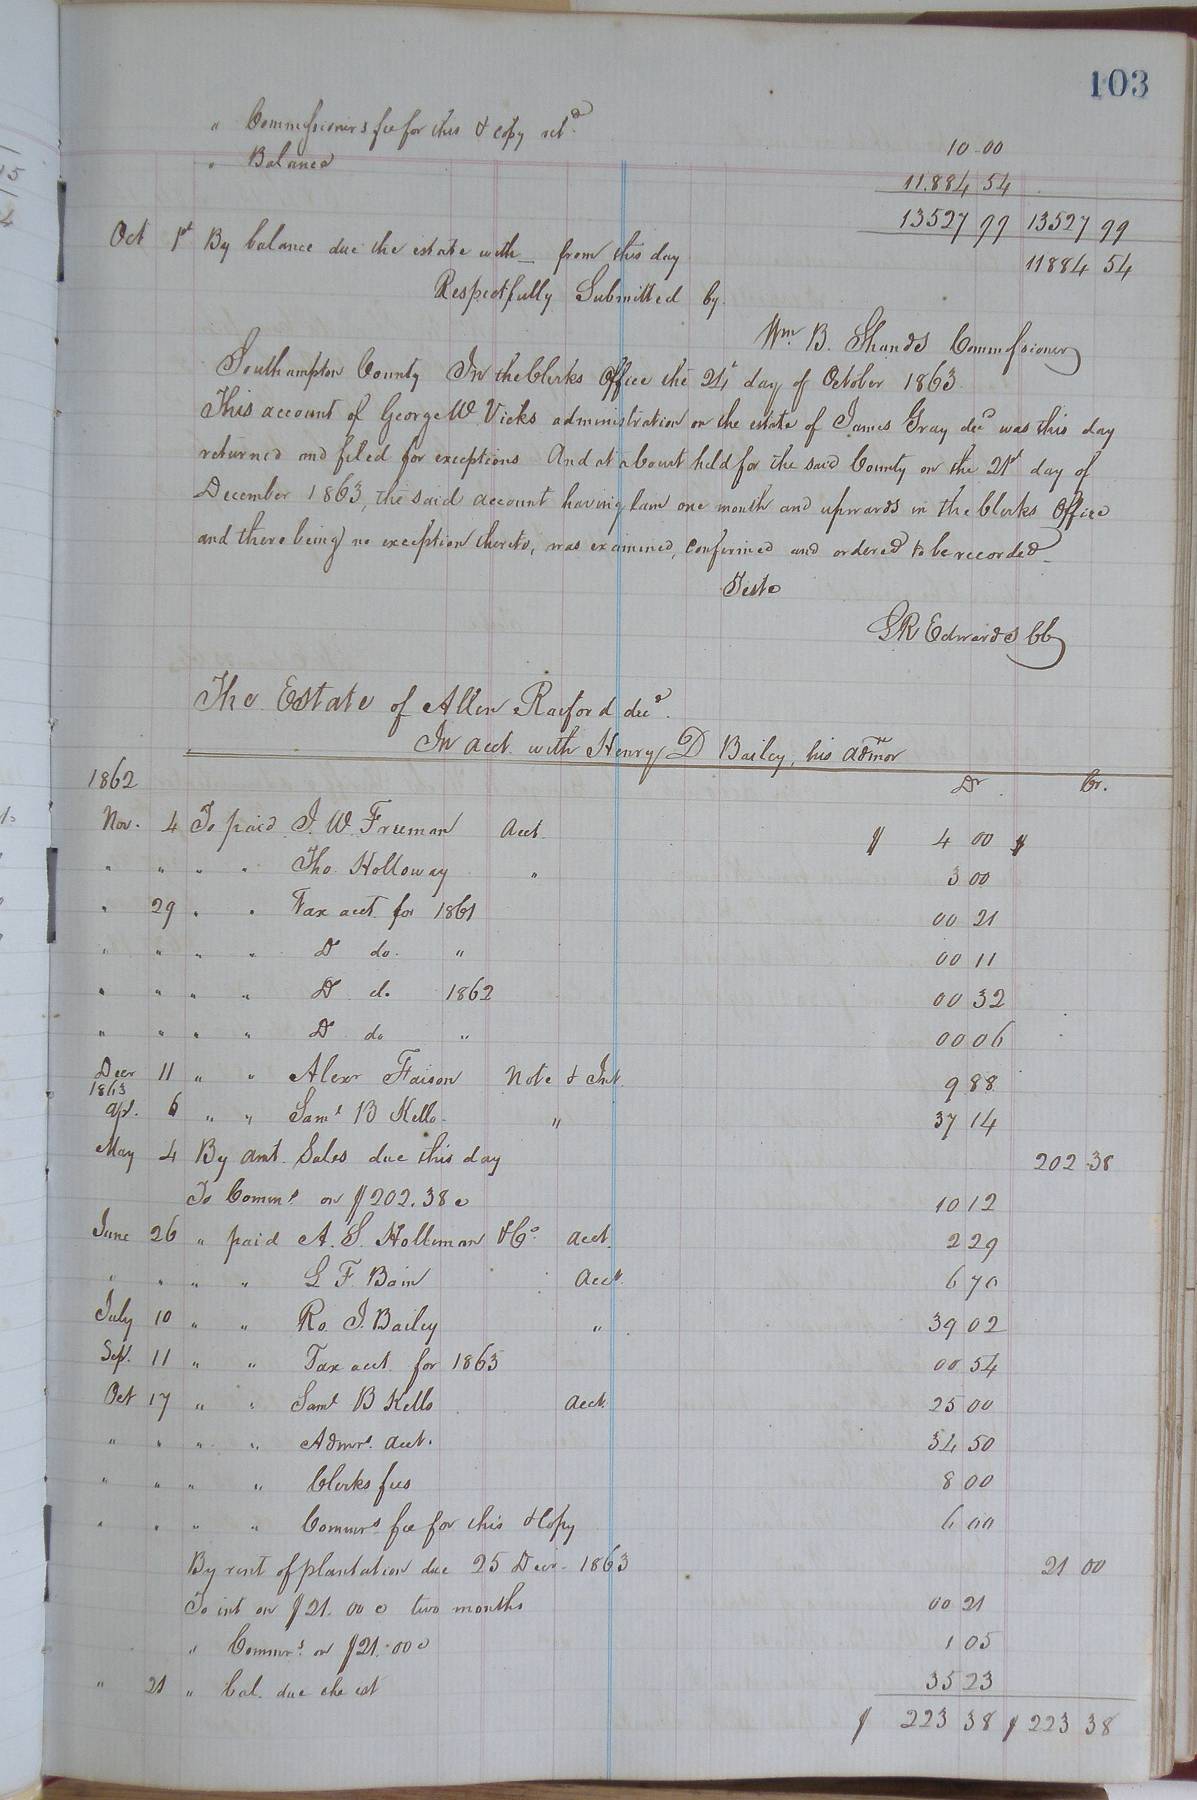 103
" Commissioners fee for this & copy retd 10 00
" Balance 11.884 54
13527 99 13527 99
Oct 1st By balance due the estate with from this day 11884 54
Respectfully Submitted by
Wm. B. Shands Commissioner
Southampton County In the Clerks Office the 21st day of October 1863
This account of George W Vicks administration on the estate of James Gray decd was this day
returned and filed for exceptions And at a Court held for the said County on the 21st day of
December 1863, the said account having lain one month and upwards in the Clerks Office
and there being no exception thereto, was examined, confirmed and ordered to be recorded
Teste
LR Edwards CC
The Estate of Allen Raiford decd.
In acct. with Henry D Bailey, his admor
1862 Dr. Cr.
Nov. 4 To paid J. W. Freeman Acct. $ 4 00 $
" " " " Tho. Holloway " 3 00
" 29 " " Tax acct for 1861 00 21
" " " " Do do. " 00 11
" " " " Do do 1862 00 32
" " " " Do do " 00 06
Decr 11 " " Alexr Faison Note & Int. 9 88
1863
Apl. 6 " " Saml B Kello " 37 14
May 4 By amt. Sales due this day 202 38
To Comms on $202.38c 10 12
June 26 " paid A. S. Holleman & Co. acct. 2 29
" " " " L F Bain Acct. 6 70
July 10 " " Ro. J. Bailey " 39 02
Sept. 11 " " Tax acct. for 1863 00 54
Oct 17 " " Saml B Kello acct. 25 00
" " " " Admrs. acct. 34 50
" " " " Clerks fees 8 00
" " " " Commrs fee for this & Copy 6 00
By rent of plantation due 25 Decr. 1863 21 00
To int on $21.00c two months 00 21
" Commrs. on $21.00c 1 05
" 21 " bal. due the est 35 23
$ 223 38 $ 223 38